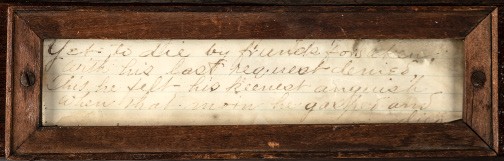 Yet to die by friends forsaken,
with his last request denied,
This he felt his keenest anguish
When that morn he gasped and